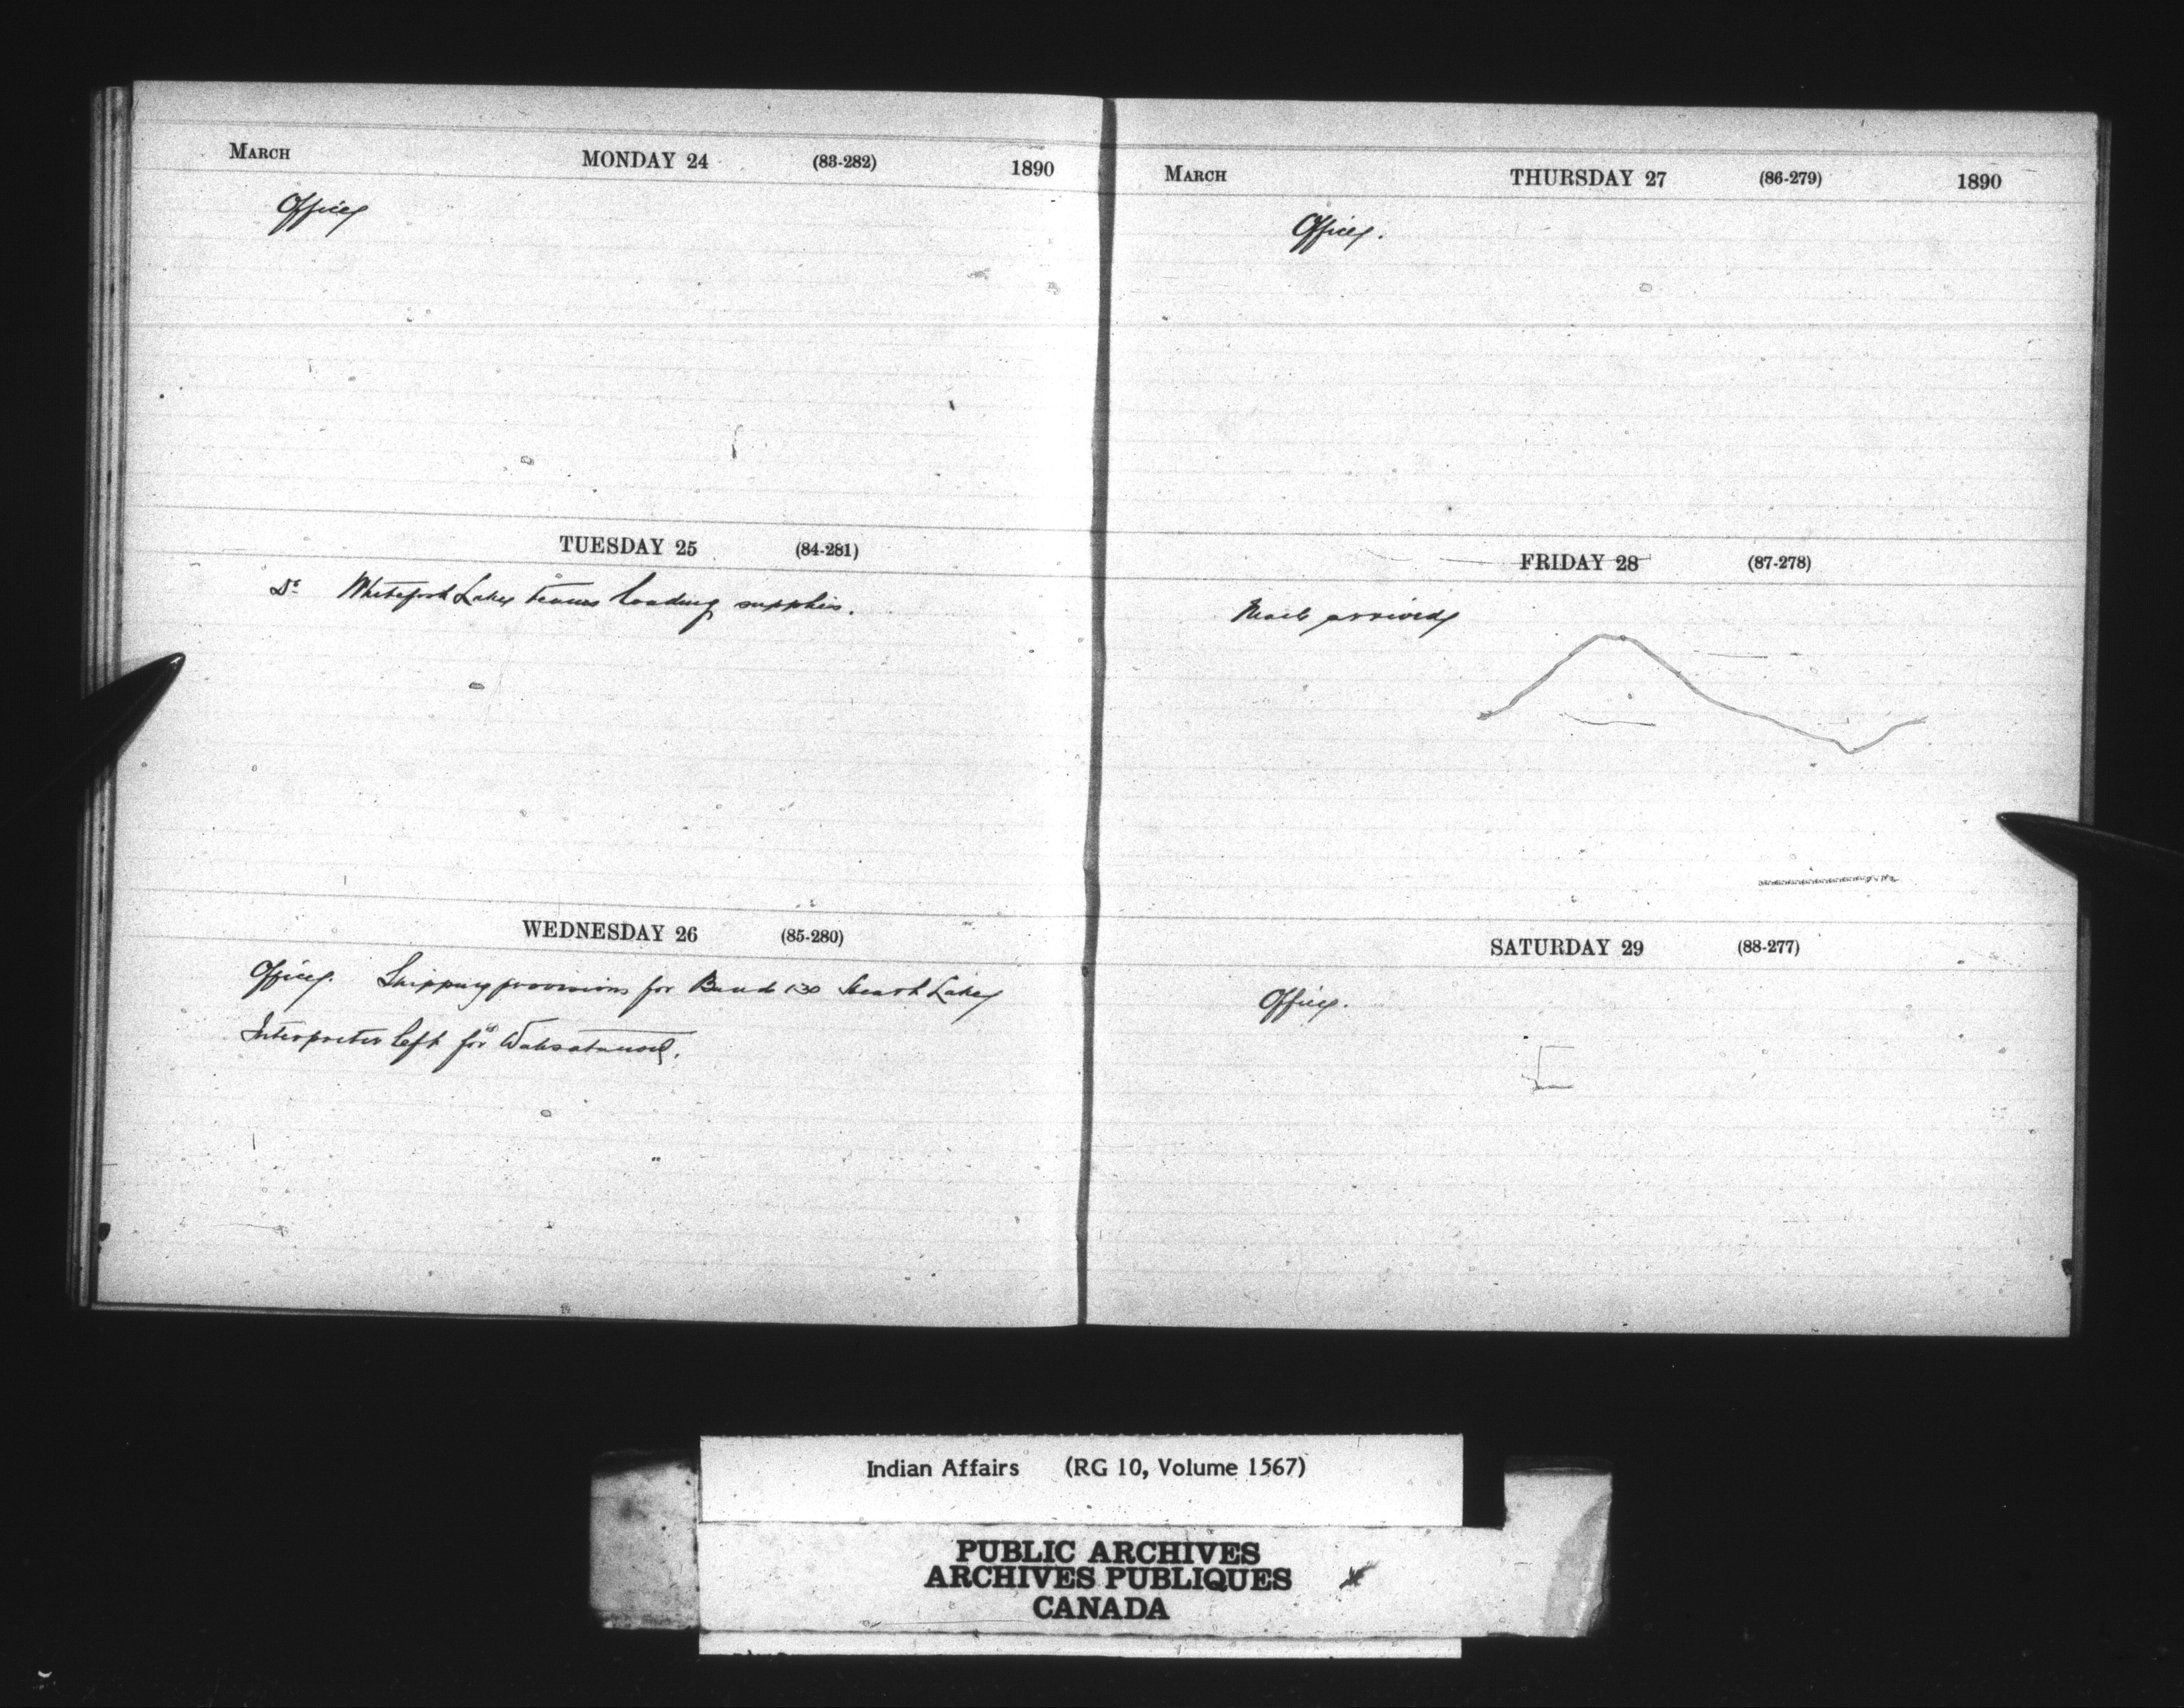 MARCH MONDAY 24 (83-282) 1890
Office
TUESDAY 25 (84-281)
Do Whitefish Lake teams loading supplies.
WEDNESDAY 26 (85-280)
Office. Shipping provisions for Band 130 Heart Lake
Interpreter left for Wahsatanow.
MARCH THURSDAY 27 (86-279) 1890
Office.
FRIDAY 28 (87-278)
Mail arrived
SATURDAY 29 (88-277)
Office.
Indian Affairs (RG 10, Volume 1567)
PUBLIC ARCHIVES
ARCHIVES PUBLIQUES
CANADA